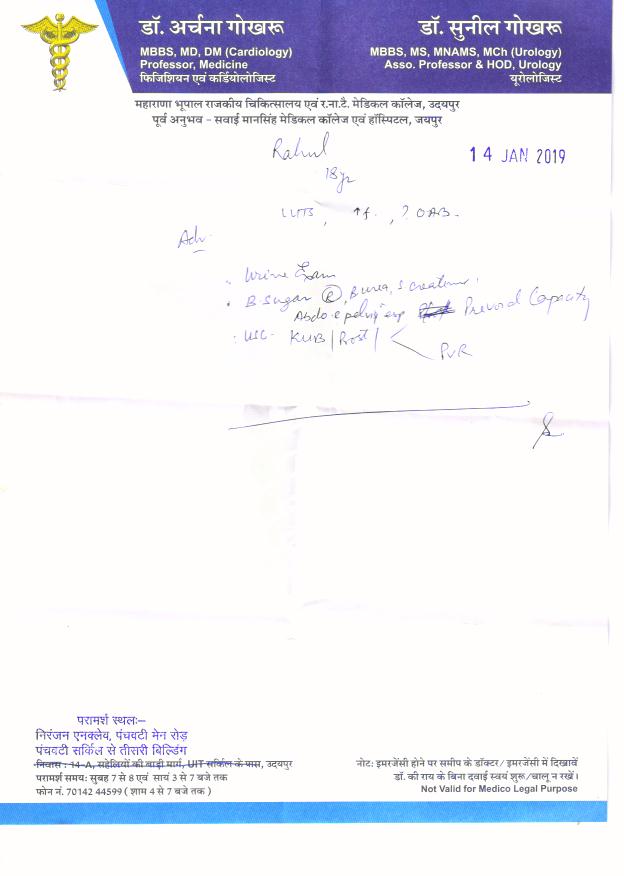 डॉ. अर्चना गोखरू
MBBS, MD, DM (Cardiology)
Professor, Medicine
फिजिशियन एवं कर्डियोलोजिस्ट
डॉ. सुनील गोखरू
MBBS, MS, MNAMS, MCh (Urology)
Asso. Professor & HOD, Urology
यूरोलोजिस्ट
महाराणा भूपाल राजकीय चिकित्सालय एवं र.ना.टै. मेडिकल कॉलेज, उदयपुर
पूर्व अनुभव – सवाई मानसिंह मेडिकल कॉलेज एवं हॉस्पिटल, जयपुर
Rahul
14 JAN 2019
18yr
LUTS, ↑f., ? OAB.
Adv.
Urine Exam
B. Sugar R, B urea, S creatinine
Abdo e pelvis Prevoid Capacity
USG- KUB / Prost /
PVR
परामर्श स्थलः–
निरंजन एनक्लेव, पंचवटी मेन रोड़
पंचवटी सर्किल से तीसरी बिल्डिंग
निवास : 14-A, सहेलियों की बाड़ी मार्ग, UIT सर्किल के पास, उदयपुर
परामर्श समय: सुबह 7 से 8 एवं सायं 3 से 7 बजे तक
फोन नं. 70142 44599 ( शाम 4 से 7 बजे तक )
नोट: इमरजेंसी होने पर समीप के डॉक्टर/ इमरजेंसी में दिखावें
डॉ. की राय के बिना दवाई स्वयं शुरू/चालू न रखें।
Not Valid for Medico Legal Purpose